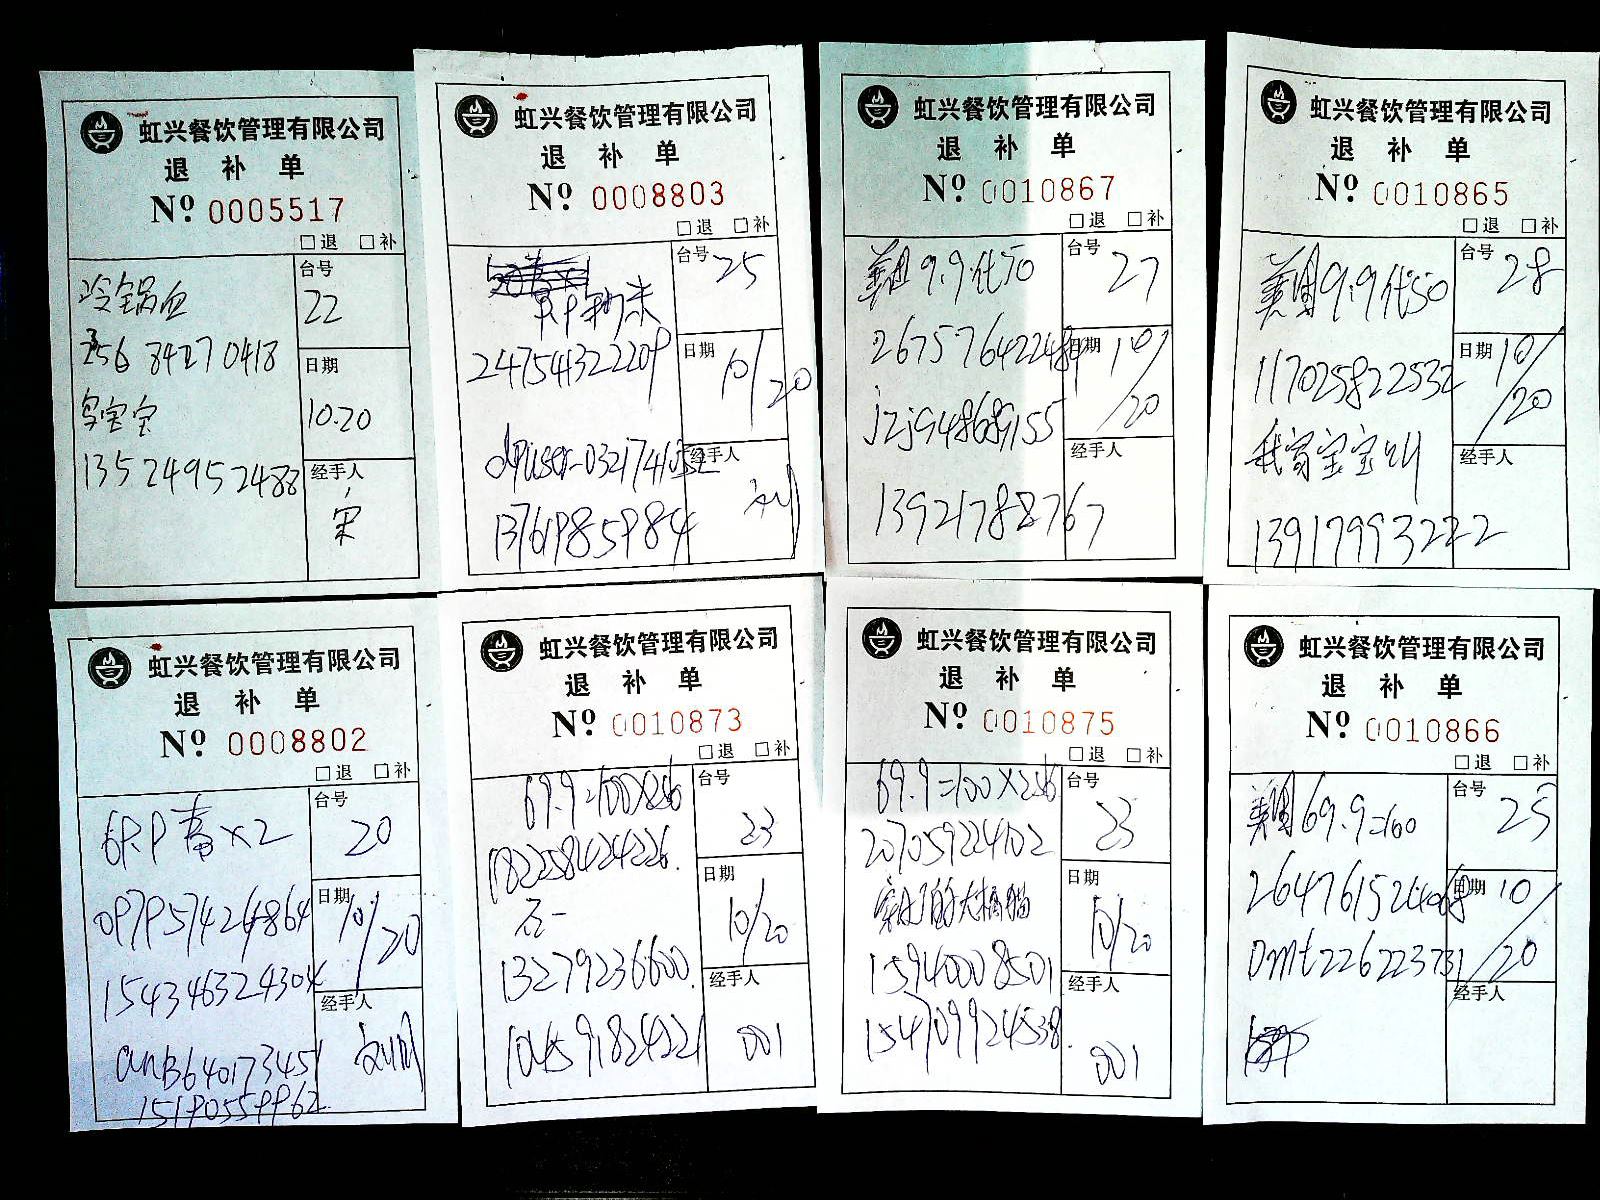 虹兴餐饮管理有限公司
退 补 单
Nº 0005517
□退 □补
冷锅血
台号
22
256 84270418
日期
10.20
13524952488
经手人
宋
虹兴餐饮管理有限公司
退 补 单
Nº 0008803
□退 □补
台号
25
247544322209
日期
10/20
经手人
13761985984
虹兴餐饮管理有限公司
退 补 单
Nº 0010867
□退 □补
美团9.9代50
台号
27
日期
10/20
jzj948689155
经手人
13921788767
虹兴餐饮管理有限公司
退 补 单
Nº 0010865
□退 □补
美团9.9代50
台号
28
117025822532
日期
10/20
经手人
13917993222
虹兴餐饮管理有限公司
退 补 单
Nº 0008802
□退 □补
台号
20
097957424864
日期
10/20
154346324304
经手人
15190559962
虹兴餐饮管理有限公司
退 补 单
Nº 0010873
□退 □补
69.9=100X2张
台号
23
182258424226.
日期
10/20
13279236600.
经手人
104591824221
001
虹兴餐饮管理有限公司
退 补 单
Nº 0010875
□退 □补
69.9=100X2张
台号
23
207059224102
日期
10/20
15940008501
经手人
154709924538.
001
虹兴餐饮管理有限公司
退 补 单
Nº 0010866
□退 □补
美团69.9=100
台号
25
日期
10/20
Dmt226223731
经手人